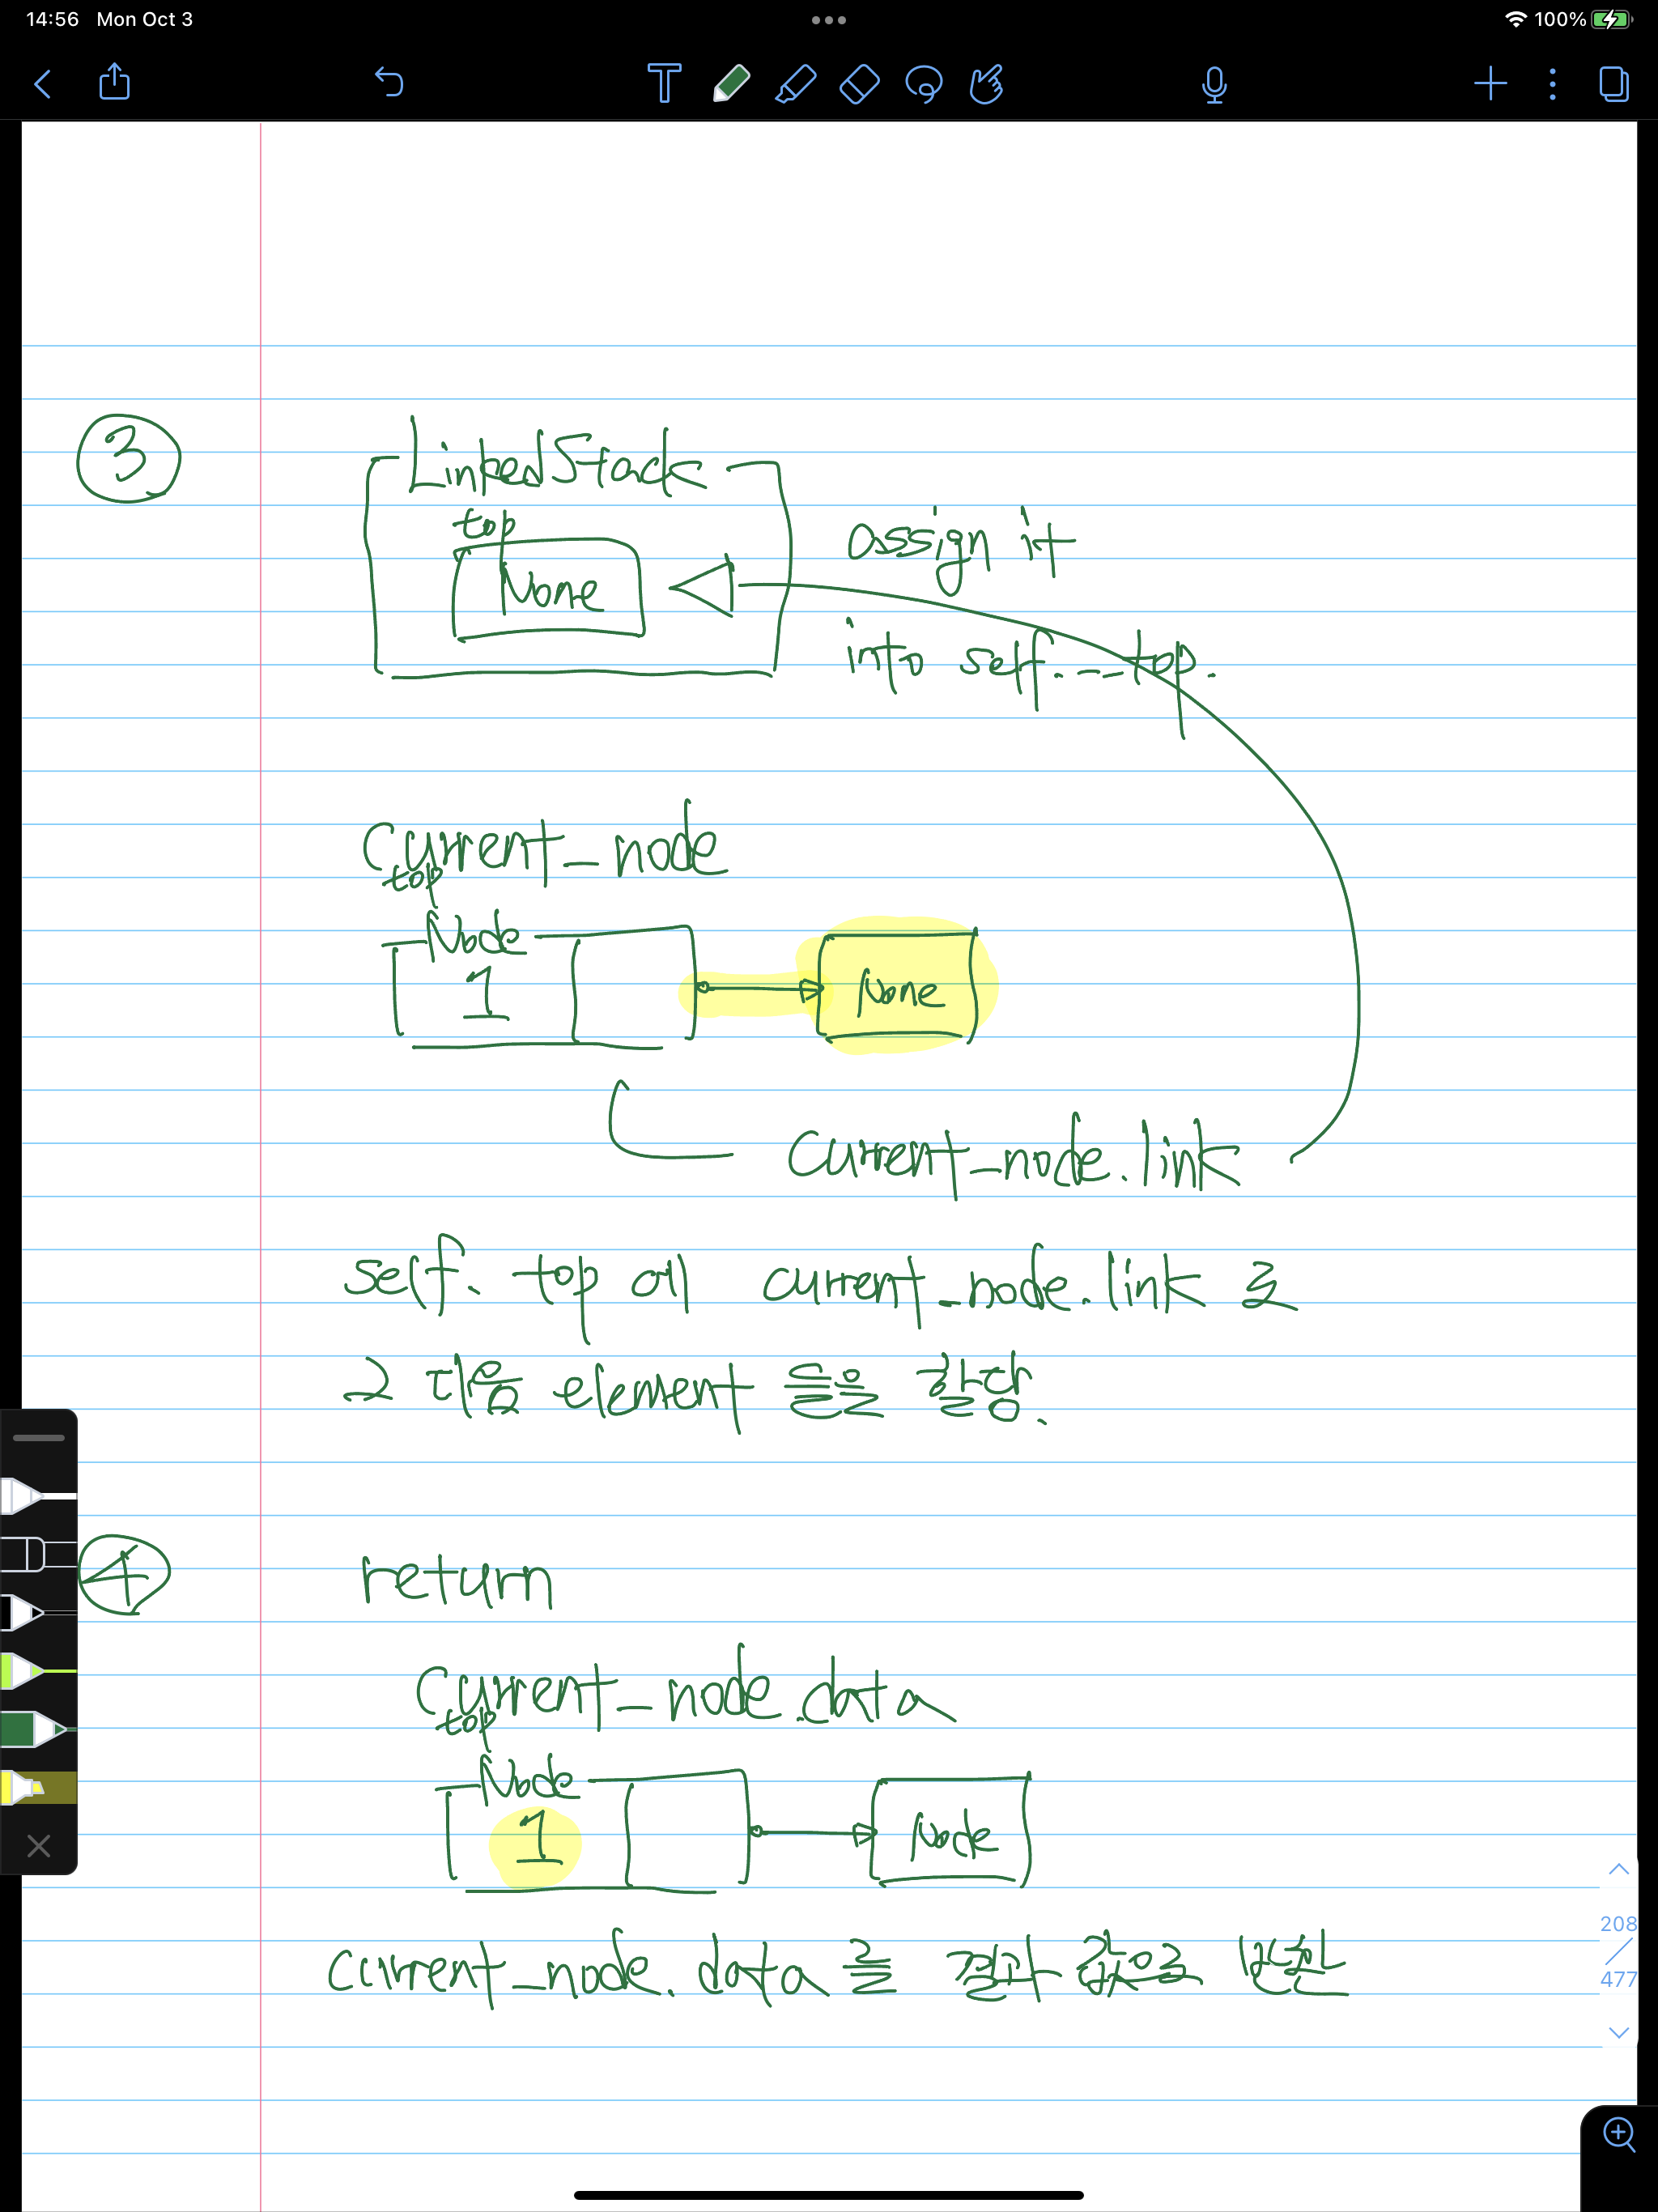 14:56 Mon Oct 3
100%
T
3
LinkedStack
top
None
assign it
into self.__top.
current_node
top
Node
1
None
current_node.link
self.top에 current_node.link 로
그 다음 element 들을 할당.
4
return
current_node.data
top
Node
1
Node
current_node.data 를 결과 값으로 반환
208
477